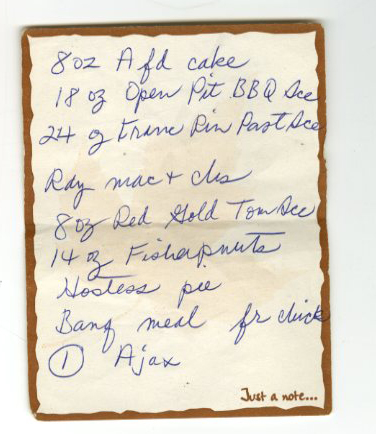 8 oz A fd cake
18 oz Open Pit BBQ Sce
24 oz Franc Rin Past Sce
Ray mac + chs
8 oz Red Gold Tom Sce
14 oz Fisher pnuts
Hostess pie
Banq meal fr chick
1 Ajax
Just a note...